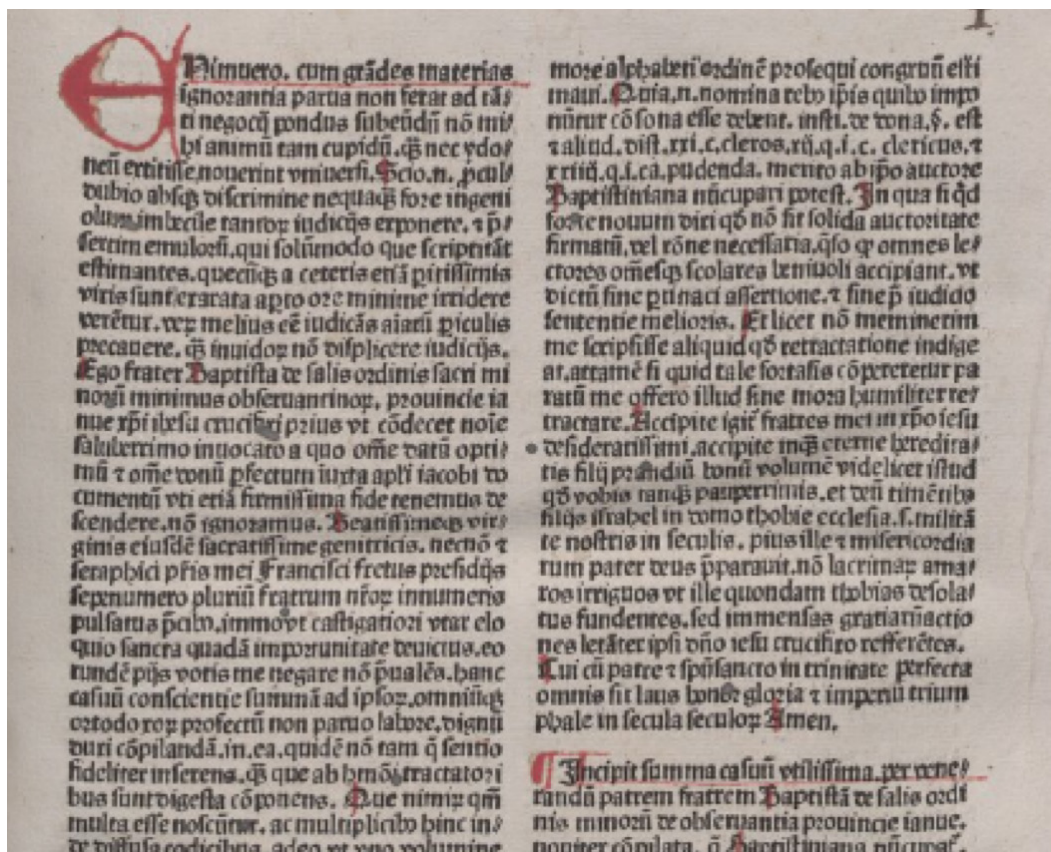 I
ENimuero. cum grādes materias
ignorantia parua non ferat ad tā⸗
ti negocij pondus subeūdū nō mi⸗
hi animū tam cupidū. qꝫ nec ydo⸗
neū extitisse nouerint vniuersi. Scio.n. ꝓcul⸗
dubio absqꝫ discrimine nequaqꝫ fore ingeni
olum imbecile tantoꝝ iudicijs exponere. ⁊ p̄⸗
sertim emuloꝝ, qui solūmodo que scriptitāt
estimantes. quecūqꝫ a ceteris etiā ꝑitissimis
viris sunt exarata apto ore minime irridere
verētur. veꝝ melius eē iudicās aīaꝝ ꝑiculis
precauere. qꝫ inuidoꝝ nō displicere iudicijs.
Ego frater Baptista de salis ordinis sacri mi
noꝝ minimus obseruantinoꝝ. prouincie ia
nue xp̄i ihesu crucifixi prius vt cōdecet noīe
saluberrimo inuocato a quo oīne datū opti⸗
mū ⁊ oīne donū ꝑfectum iuxta apl̄i iacobi do
cumentū vti etiā firmissima fide tenemus de
scendere. nō ignoramus. Beatissimeqꝫ vir⸗
ginis eiusdē sacratissime genitricis. necnō ⁊
seraphici pr̄is mei Francisci fretus presidijs
sepenumero pluriū fratrum nr̄oꝝ innumeris
pulsatus p̄cibꝰ. immo vt castigatiori vtar elo
quio sancta quadā importunitate deuictus. eo
rundē pijs votis me negare nō p̄ualēs. hanc
casuū conscientie summā ad ipsoꝝ. omniūqꝫ
ortodoxoꝝ profectū non paruo labore. dignū
duxi cōpilandā. in. ea. quidē nō tam q̄ sentio
fideliter inserens. qꝫ que ab hmōi tractatori
bus sunt digesta cōponens. Que nimiꝝ qm̄
multa esse noscūtur. ac multiplicibꝰ hinc in⸗
de diffusa codicibus. adeo vt vno volumine
more alphabeti ordinē prosequi congruū esti
maui. Quia.n. nomina rebꝰ ip̄is quibꝰ impo
nūtur cōsona esse debent. insti. de dona. §. est
⁊ aliud. dist. xxi. c. cleros. xij. q. i. c. clericus. ⁊
xxiiij. q. i. ca. pudenda. merito ab ip̄o auctore
Baptistiniana nūcupari potest. In qua si qd
forte nouum dixi qd̄ nō sit solida auctoritate
firmatū. vel rōne necessaria. q̄so ꝙ omnes le⸗
ctores om̄esqꝫ scolares beniuoli accipiant. vt
dictū sine ꝑtinaci assertione. ⁊ sine p̄ iudicio
sententie melioris. Et licet nō meminerim
me scripsisse aliquid qd̄ retractatione indige
at. attamē si quid tale fortasis cōperetetur pa
ratū me offero illud sine mora humiliter re⸗
tractare. Accipite igit̄ fratres mei in xp̄o iesu
desideratissimi. accipite inqꝫ eterne heredita⸗
tis filij prandiū bonū volumē videlicet istud
qd̄ vobis tanqꝫ pauperrimis. et deū timētibꝰ
filijs israhel in domo thobie ecclesia. s. militā
te nostris in seculis. pius ille ⁊ misericordia
rum pater deus p̄parauit. nō lacrimaꝝ ama⸗
ros irriguos vt ille quondam thobias desola⸗
tus fundentes. sed immensas gratiaꝝ actio
nes letāter ipsi dn̄o iesu crucifixo refferētes.
Cui cū patre ⁊ sp̄usancto in trinitate perfecta
omnis sit laus honor gloria ⁊ imperiū trium
phale in secula seculoꝝ Amen.
¶ Incipit summa casuū vtilissima. per vene⸗
randū patrem fratrem Baptistā de salis ordi
nis minoꝝ de obseruantia prouincie ianue.
nouiter cōpilata. q̄ Baptistiniana nūcupat̄.